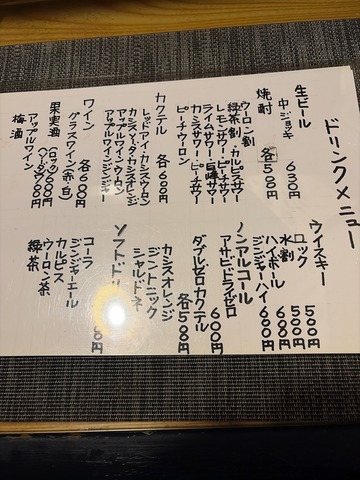 ドリンクメニュー
生ビール
中ジョッキ 630円
焼酎 各500円
ウーロン割
緑茶割・カルピスサワー
レモンサワー・ピーチサワー
ライムサワー・巨峰サワー
カシスサワー・ピーチサワー
ピーチウーロン
カクテル 各600円
レッドアイ・カシスウーロン
カシスソーダ・カシスオレンジ
アップルワインウーロン
アップルワインジンジャー
ワイン 各600円
グラスワイン(赤・白)
果実酒 (ロック)600円
(ソーダ)600円
アップルワイン
梅酒
ウイスキー
ロック 500円
水割 500円
ハイボール 600円
ジンジャーハイ 600円
ノンアルコール
アサヒドライゼロ 600円
ダブルゼロカクテル 各500円
カシスオレンジ
ジントニック
シャルドネ
ソフトドリ 0円
コーラ
ジンジャーエール
カルピス
ウーロン茶
緑茶